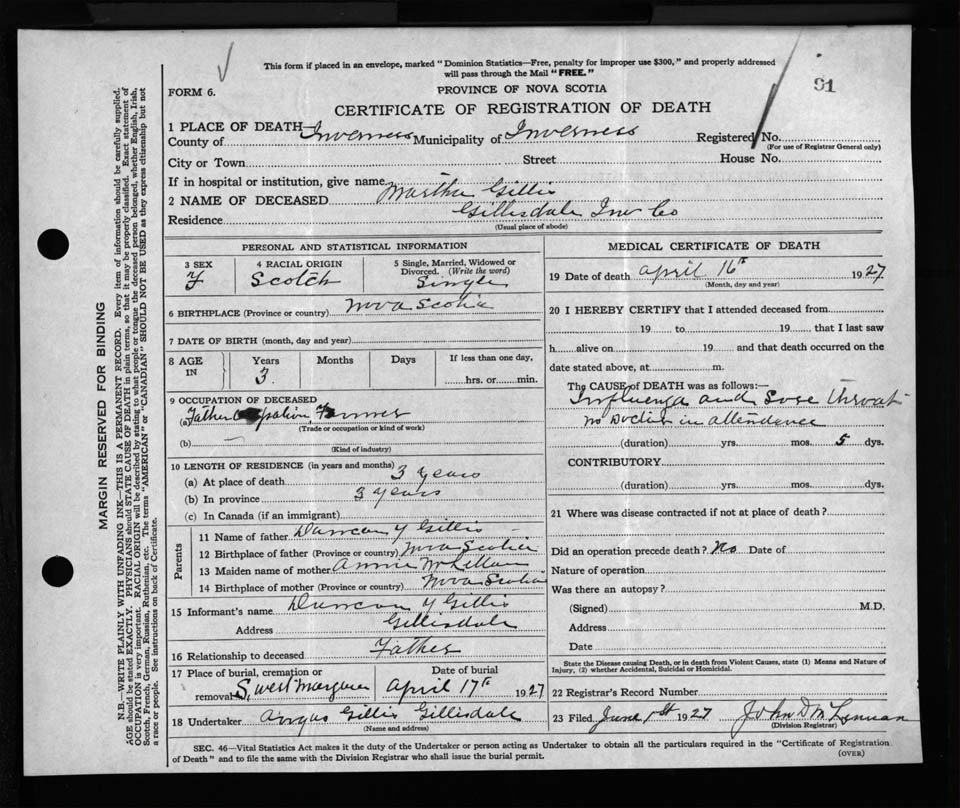 This form if placed in an envelope, marked "Dominion Statistics—Free, penalty for improper use $300," and properly addressed
will pass through the Mail "FREE."
91
FORM 6.
PROVINCE OF NOVA SCOTIA
CERTIFICATE OF REGISTRATION OF DEATH
1 PLACE OF DEATH—
County of Inverness Municipality of Inverness Registered No.
(For use of Registrar General only)
City or Town Street House No.
If in hospital or institution, give name
2 NAME OF DECEASED Martha Gillis
Residence Gillisdale Inv Co
(Usual place of abode)
PERSONAL AND STATISTICAL INFORMATION
3 SEX F
4 RACIAL ORIGIN Scotch
5 Single, Married, Widowed or Divorced. (Write the word) Single
6 BIRTHPLACE (Province or country) Nova Scotia
7 DATE OF BIRTH (month, day and year)
8 AGE IN Years 3 Months Days If less than one day, hrs. or min.
9 OCCUPATION OF DECEASED
(a) Father Farmer
(Trade or occupation or kind of work)
(b) —
(Kind of industry)
10 LENGTH OF RESIDENCE (in years and months)
(a) At place of death 3 years
(b) In province 3 years
(c) In Canada (if an immigrant)
Parents
11 Name of father Duncan Y Gillis
12 Birthplace of father (Province or country) Nova Scotia
13 Maiden name of mother Annie McLellan
14 Birthplace of mother (Province or country) Nova Scotia
15 Informant's name Duncan Y Gillis
Address Gillisdale
16 Relationship to deceased Father
17 Place of burial, cremation or removal S. west Margaree Date of burial April 17th 1927
18 Undertaker Angus Gillis Gillisdale
(Name and address)
MEDICAL CERTIFICATE OF DEATH
19 Date of death April 16th 1927
(Month, day and year)
20 I HEREBY CERTIFY that I attended deceased from
19 to 19 that I last saw
h alive on 19 and that death occurred on the
date stated above, at m.
The CAUSE of DEATH was as follows:—
Influenza and Sore throat
no Doctor in attendence
(duration) yrs. mos. 5 dys.
CONTRIBUTORY
(duration) yrs. mos. dys.
21 Where was disease contracted if not at place of death?
Did an operation precede death? No Date of
Nature of operation
Was there an autopsy?
(Signed) M.D.
Address
Date
State the Disease causing Death, or in death from Violent Causes, state (1) Means and Nature of
Injury, (2) whether Accidental, Suicidal or Homicidal.
22 Registrar's Record Number
23 Filed June 1st 1927 John D McLennan
(Division Registrar)
SEC. 46—Vital Statistics Act makes it the duty of the Undertaker or person acting as Undertaker to obtain all the particulars required in the "Certificate of Registration
of Death" and to file the same with the Division Registrar who shall issue the burial permit.
(OVER)
MARGIN RESERVED FOR BINDING
N.B.—WRITE PLAINLY WITH UNFADING INK—THIS IS A PERMANENT RECORD. Every item of information should be carefully supplied.
AGE should be stated EXACTLY. PHYSICIANS should STATE CAUSE OF DEATH in plain terms, so that it may be properly classified. Exact statement of
OCCUPATION is very important. RACIAL ORIGIN will be described by stating to what people or tongue the deceased person belonged, whether English, Irish,
Scotch, French, German, Russian, Ruthenian, etc. The terms "AMERICAN" or "CANADIAN" SHOULD NOT BE USED as they express citizenship but not
a race or people. See instructions on back of Certificate.